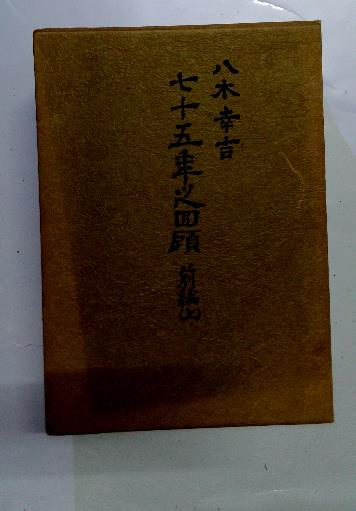 八木幸吉
七十五年之回顧 前編